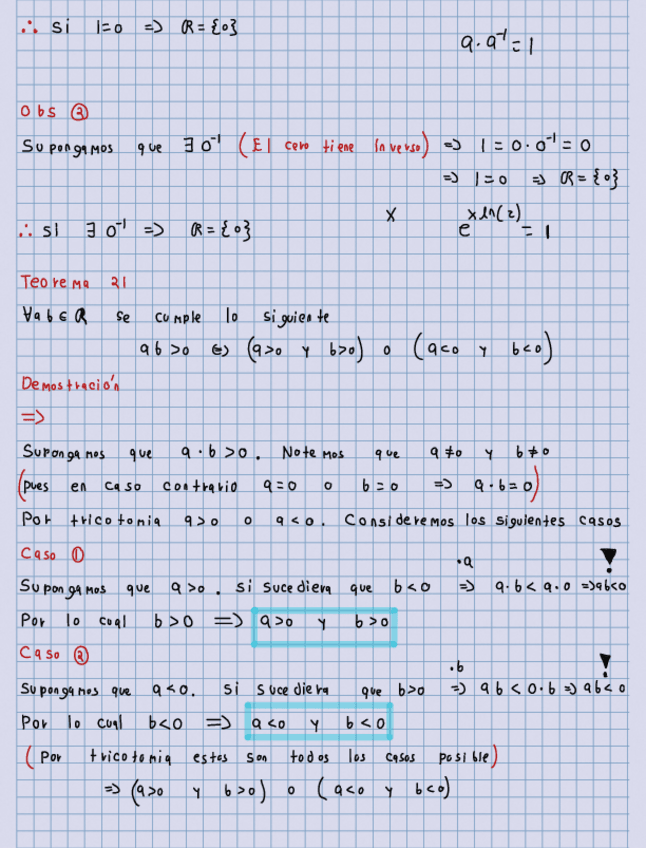 ∴ si 1=0 => ℝ={0}
a·a⁻¹=1
Obs ②
Supongamos que ∃ 0⁻¹ (El cero tiene Inverso) => 1=0·0⁻¹=0
=> 1=0 => ℝ={0}
∴ si ∃ 0⁻¹ => ℝ={0}
x
e^(x ln(2)) = 1
Teorema 21
∀ab∈ℝ se cumple lo siguiente
ab>0 <=> (a>0 y b>0) o (a<0 y b<0)
Demostración
=>
Supongamos que a·b>0. Notemos que a≠0 y b≠0
(pues en caso contrario a=0 o b=0 => a·b=0)
Por tricotomia a>0 o a<0. Consideremos los siguientes casos
Caso ①
·a !
Supongamos que a>0. si sucediera que b<0 => a·b<a·0 =>ab<0
Por lo cual b>0 => a>0 y b>0
Caso ②
·b !
Supongamos que a<0. si sucediera que b>0 => ab<0·b => ab<0
Por lo cual b<0 => a<0 y b<0
(Por tricotomia estos son todos los casos posible)
=> (a>0 y b>0) o (a<0 y b<0)